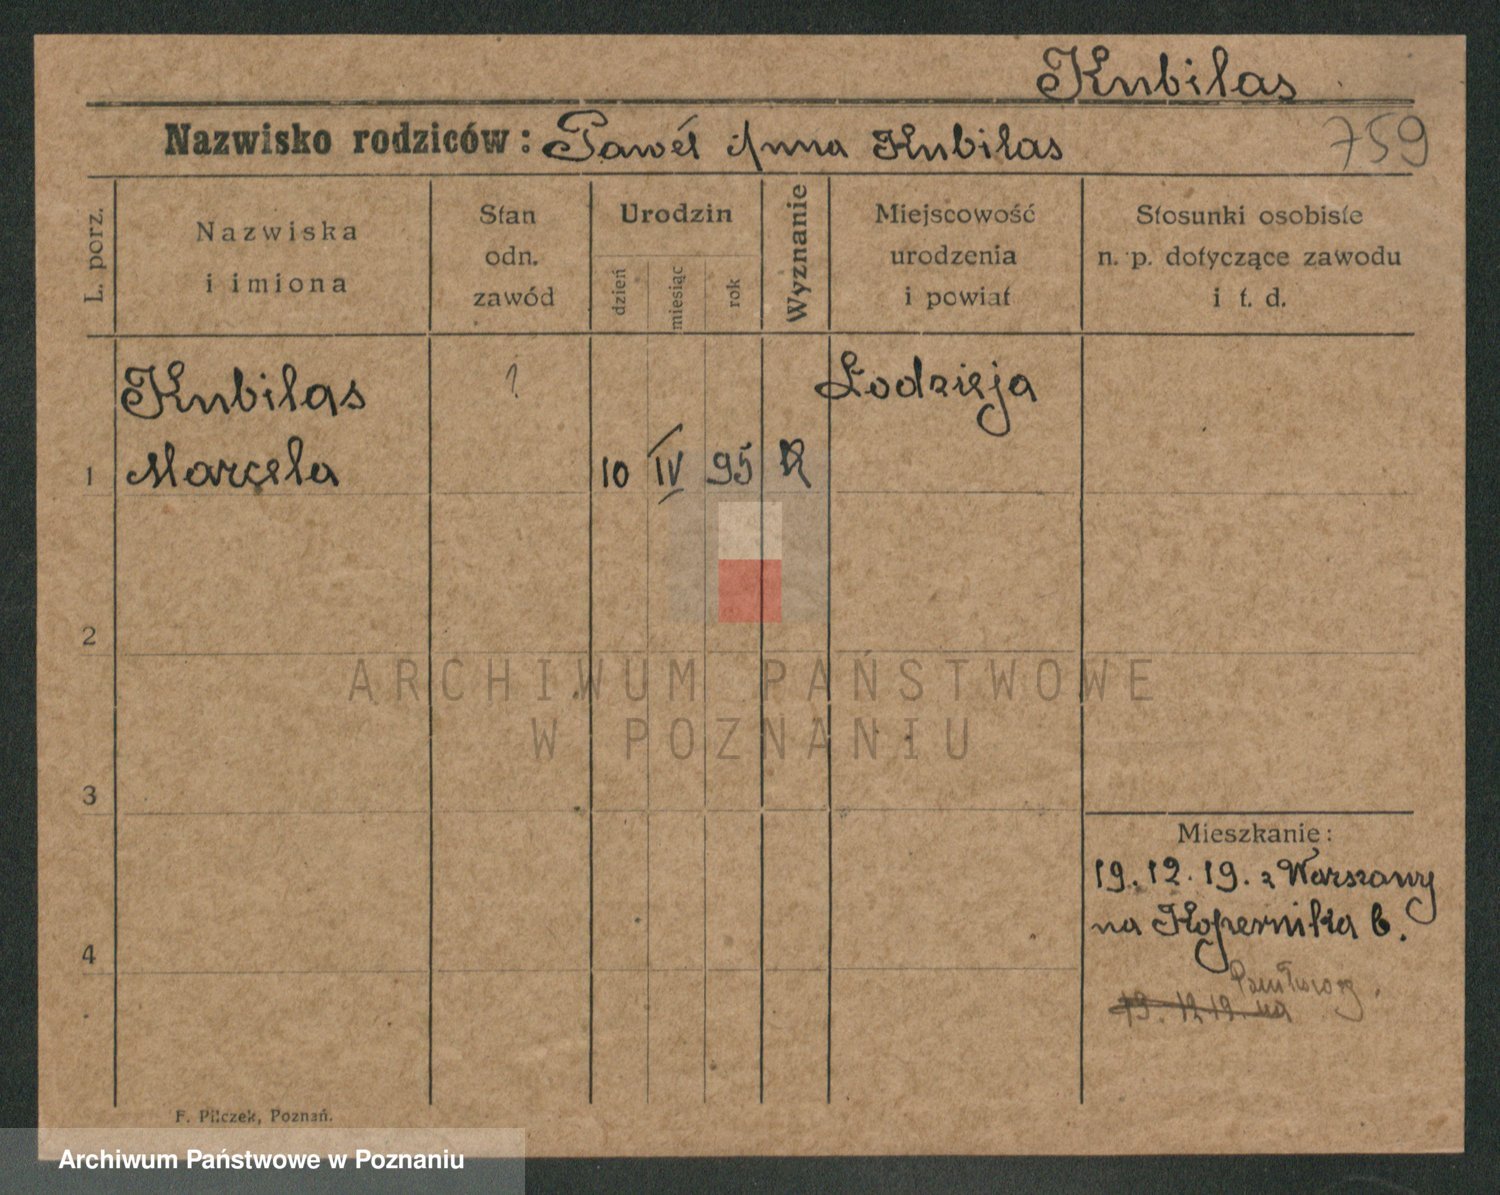 Kubilas
Nazwisko rodziców: Paweł i Anna Kubilas
759
L. porz.
Nazwiska
i imiona
Stan
odn.
zawód
Urodzin
dzień
miesiąc
rok
Wyznanie
Miejscowość
urodzenia
i powiat
Stosunki osobiste
n. p. dotyczące zawodu
i t. d.
Kubilas
?
Łodzieja
1 Marcela 10 IV 95
2
3
4
Mieszkanie:
19.12.19. z Warszawy
na Kopernika 6.
19. 12 19. na
F. Pilczek, Poznań.
ARCHIWUM PAŃSTWOWE
W POZNANIU
Archiwum Państwowe w Poznaniu